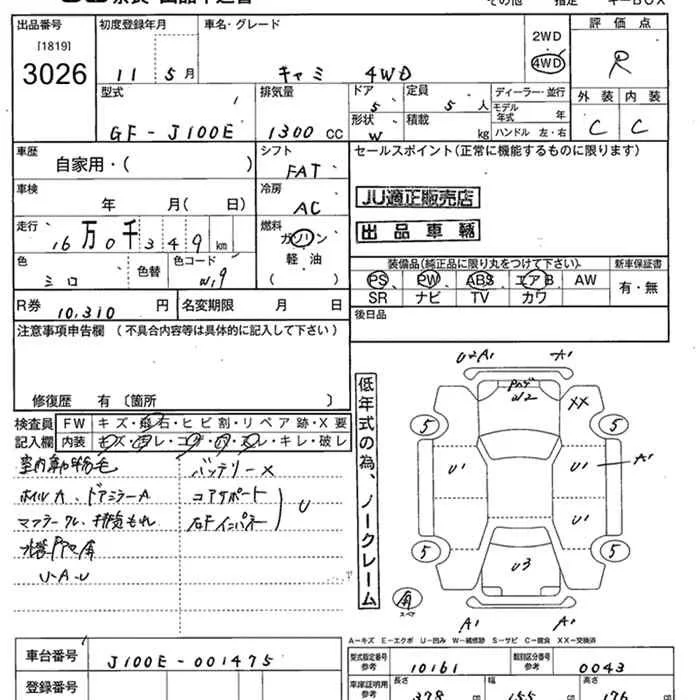 その他
出品番号 初度登録年月 車名・グレード 2WD 評価点
[1819]
3026 11 5月 キャミ 4WD 4WD R
型式 排気量 ドア 5 定員 5人 ディーラー・並行 外装 内装
GF-J100E 1300 CC 形状 W 積載 kg モデル年式 年 ハンドル 左・右 C C
車歴 シフト セールスポイント(正常に機能するものに限ります)
自家用・( ) FAT
車検 冷房 JU適正販売店
年 月( 日) AC
走行 燃料 出品車輛
16万0千349km ガソリン
色 色替 色コード 軽・油 装備品(純正品に限り丸をつけて下さい) 新車保証書
シロ ( ) PS PW ABS エアB AW 有・無
R券 10,310 円 名変期限 月 日 SR ナビ TV カワ
注意事項申告欄(不具合内容等は具体的に記入して下さい) 後日品
修復歴 有〔箇所 〕
検査員 FW キズ・飛石・ヒビ割・リペア跡・X要
記入欄 内装
バッテリー×
ホイルA、ドアミラーA コアサポート
U
U・A・U
低年式の為、ノークレーム
U2A1 A1
W2 XX
5 5
U1 U1 A1
U1
5 5
U3
A1 A1
A-キズ E-エクボ U-凹み W-補修跡 S-サビ C-腐食 XX-交換済
車台番号 J100E-001475 型式指定番号 参考 10161 類別区分番号 参考 0043
登録番号 車庫証明用 参考 長さ 378 cm 幅 155 cm 高さ 176 cm